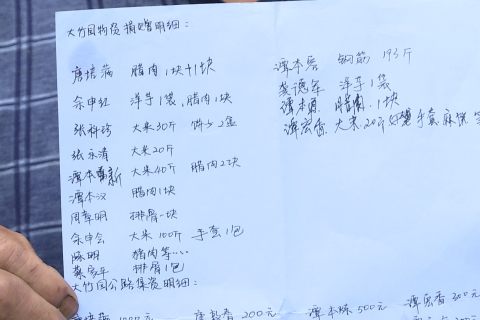 大竹园物资捐赠明细：
唐培菊 腊肉1块+1块
余申红 洋芋1袋、腊肉1块
张祥珍 大米30斤 饼子2盒
张永清 大米20斤
谭本新 大米40斤 腊肉2块
谭本汉 腊肉1块
周章明 排骨一块
余申会 大米100斤 手套1包
猪肉等...
排骨1包
大竹园公路集资明细：
谭本 钢筋 193斤
洋芋1袋
谭本 1块
谭宏香 大米20斤 手套 麻花
1000元 200元 谭本 500元 谭宏香 300元